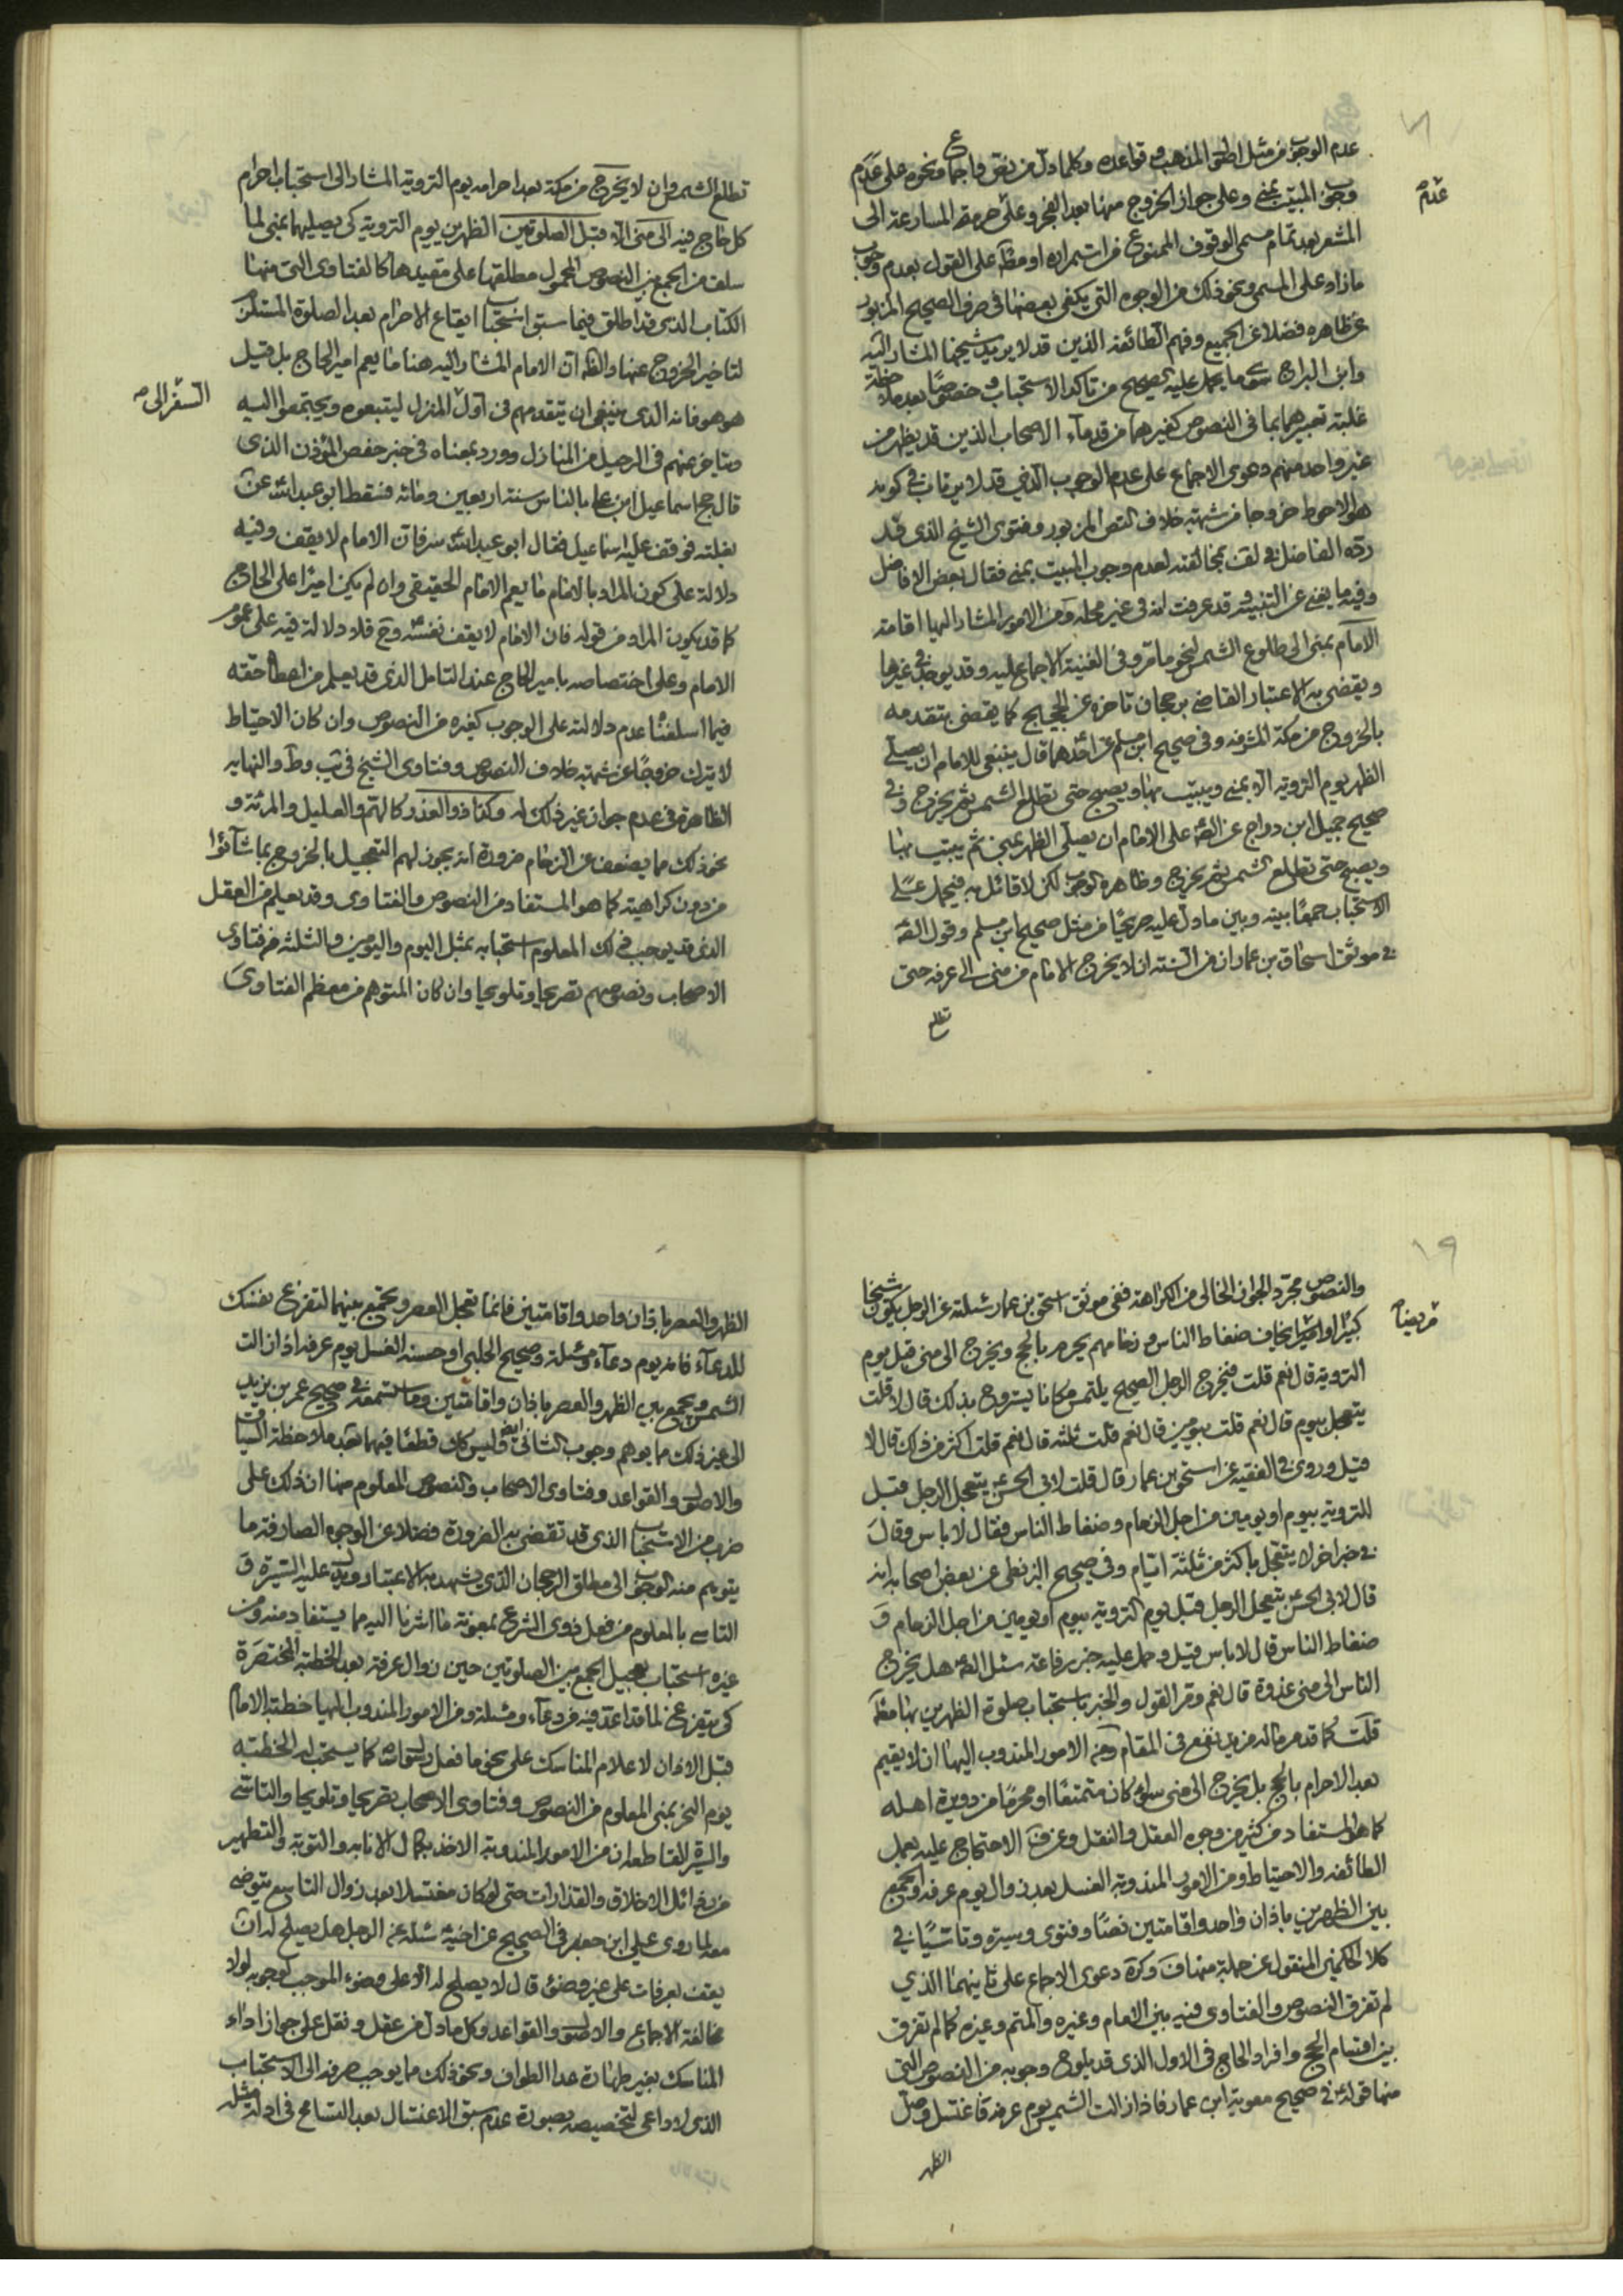 عدم الوجوب من مثل اطلاق المذهب و قواعده وكلما دل من نص واجماع ونحوه على عدم
وجوب المبيت بمنى وعلى جواز الخروج منها بعد الفجر وعلى حرمة المسارعة الى
المشعر بعد تمام مسمى الوقوف الممنوع من استمراره او مطلقا على القول بعدم وجوب
مازاد على المسمى ونحو ذلك من الوجوه التي يكفى بعضها في صرف الصحيح المزبور
عن ظاهره فضلا عن الجميع وفهم الطائفة الذين قد لا يريد شيخها المشار اليه
وابن البراج سوى ما يحمل عليه الصحيح من تاكد الاستحباب وخصوصا بعد ملاحظة
غلبة تعبيرهما بما في النصوص كغيرهما من قدماء الاصحاب الذين قد يظهر من
غير واحد منهم دعوى الاجماع على عدم الوجوب الذي قد لا يرتاب في كونه
هو الاحوط خروجا من شبهة خلاف النص المزبور وفتوى الشيخ الذي قد
رده الفاضل في لف بمخالفته لعدم وجوب المبيت بمنى فقال بعض الافاضل
وفيه ما يغنى عن التنبيه قد عرفت انه في غير محله ومن الامور المشار اليها اقامة
الامام بمنى الى طلوع الشمس لنحو ما مر وفى الغنية الاجماع عليه وقد يوجب في غيرها
ويقضى به الاعتبار القاضى برجحان تاخره عن الحجيج كما يقضى بتقدمه
بالخروج من مكة المشرفة وفى صحيح ابن مسلم عن احدهما قال ينبغى للامام ان يصلى
الظهر يوم التروية الا بمنى ويبيت بها ويصبح حتى تطلع الشمس ثم يخرج وفى
صحيح جميل ابن دراج عن الص على الامام ان يصلى الظهر بمنى ثم يبيت بها
ويصبح حتى تطلع الشمس ثم يخرج وظاهره الوجوب لكن لا قائل به فيحمل على
الاستحباب جمعا بينه وبين ما دل عليه صريحا من مثل صحيح ابن مسلم وقول الص
في موثق اسحاق بن عمار ان من السنة ان لا يخرج الامام من منى الى عرفة حتى
تطلع
عدم
تطلع الشمس وان لا يخرج من مكة بعد احرامه يوم التروية المشار الى استحباب احرام
كل حاج فيه الى منى الا قبل الصلوتين الظهرين يوم التروية كى يصليهما بمنى لما
سلف من الجمع بين النصوص المحمول مطلقها على مقيدها كالفتاوى التي منها
الكتاب الذى قد اطلق فيما سبق استحباب ايقاع الاحرام بعد الصلوة المستلزم
لتاخير الخروج عنها والظ ان الامام المشار اليه هنا ما يعم امير الحاج بل قيل
هو هو فانه الذى ينبغى ان يتقدمهم في اول المنزل ليتبعوه ويجتمعوا اليه
ويتاخر عنهم فى الرحيل من المنازل وورد بمعناه في خبر حفص المؤذن الذى
قال حج اسماعيل ابن على بالناس سنة اربعين ومائة فسقط ابو عبد الله عن
بغلته فوقف عليه اسماعيل فقال ابو عبد الله سر فان الامام لا يقف وفيه
دلالة على كون المراد بالامام ما يعم الامام الحقيقى وان لم يكن اميرا على الحاج
كما قد يكون المراد من قوله فان الامام لا يقف نفسه وح فلا دلالة فيه على عموم
الامام وعلى اختصاصه بامير الحاج عند التامل الذى قد يعلم من اعطاء حقه
فيما اسلفنا عدم دلالته على الوجوب كغيره من النصوص وان كان الاحتياط
لا يترك خروجا عن شبهة خلاف النصوص وفتاوى الشيخ في يب وط والنهاية
الظاهرة في عدم جواز غير ذلك له وكذا ذو العذر كالهم والعليل والمرئة و
نحو ذلك مما يضعف عن الزحام ضرورة انه يجوز لهم التعجيل بالخروج بما شاؤا
من دون كراهية كما هو المستفاد من النصوص والفتاوى وقد يعلم من العقل
الذى قد يوجب ذلك المعلوم استحبابه بمثل اليوم واليومين والثلثة من فتاوى
الاصحاب ونصوصهم تصريحا وتلويحا وان كان المتوهم من معظم الفتاوى
السفر الى
١٩
والنصوص مجرد الجواز الخالى من الكراهة ففى موثق اسحق بن عمار سئلته عن الرجل يكون شيخا
كبيرا او مريضا يخاف ضغاط الناس وزحامهم يحرم بالحج ويخرج الى منى قبل يوم
التروية قال نعم قلت فيخرج الرجل الصحيح يلتمس مكانا ليتروح بذلك قال لا قلت
يتعجل بيوم قال نعم قلت يومين قال نعم قلت ثلثة قال نعم قلت اكثر من ذلك قال لا
قيل وروى في الفقيه عن اسحق بن عمار قال قلت لابى الحسن يتعجل الرجل قبل
التروية بيوم او يومين من اجل الزحام وضغاط الناس فقال لا باس وقال
في خبر اخر لا يتعجل باكثر من ثلثة ايام وفى صحيح البزنطى عن بعض اصحابه انه
قال لابى الحسن يتعجل الرجل قبل يوم التروية بيوم او يومين من اجل الزحام و
ضغاط الناس قال لا باس قيل وحمل عليه خبر رفاعة سئل الص هل يخرج
الناس الى منى غدوة قال نعم وقر القول والخبر باستحباب صلوة الظهرين بها مطلقا
قلت كما قد مر ماله مزيد نفع في المقام ومن الامور المندوب اليها ان لا يقيم
بعد الاحرام بالحج بل يخرج الى منى سواء كان متمتعا او محرما من دويرة اهله
كما هو المستفاد من كثير من وجوه العقل والنقل وعن ف الاحتجاج عليه بعمل
الطائفة والاحتياط ومن الامور المندوبة الغسل بعد زوال يوم عرفة والجمع
بين الظهرين باذان واحد واقامتين نصا وفتوى وسيرة وتاسيا في
كلا الحكمين المنقول عن جملة منها ف وكرة دعوى الاجماع على ثانيهما الذي
لم تفرق النصوص والفتاوى فيه بين الامام وغيره والمتم وغيره كما لم تفرق
بين اقسام الحج وافراد الحاج في الاول الذى قد يلوح وجوبه من النصوص التى
منها قوله في صحيح معوية ابن عمار فاذا زالت الشمس يوم عرفة فاغتسل وصل
الظهر
مريضا
الظهر والعصر باذان واحد واقامتين فانما تعجل العصر وتجمع بينهما لتفرغ نفسك
للدعاء فانه يوم دعاء ومسئلة وصحيح الحلبى او حسنه الغسل يوم عرفة اذا زالت
الشمس ويجمع بين الظهر والعصر باذان واقامتين وما ستسمعه في صحيح عمر بن يزيد
الى غير ذلك مما يوهم وجوب الثانى ايض وليس كك قطعا فيهما بعد ملاحظة السياق
والاصل والقواعد وفتاوى الاصحاب والنصوص المعلوم منها ان ذلك على
ضرب من الاستحباب الذى قد تقضى به الضرورة فضلا عن الوجوه الصارفة ما
يتوهم منه الوجوب الى مطلق الرجحان الذى يشهد به الاعتبار ويدل عليه السيرة و
التاسى بالمعلوم من فعل ذوى الشرع بمعونة ما اشرنا اليه مما يستفاد منه ومن
غيره استحباب تعجيل الجمع بين الصلوتين حين زوال عرفة بعد الخطبة المختصرة
كى يتفرغ لما قد اعد فيه من دعاء ومسئلة ومن الامور المندوب اليها خطبة الامام
قبل الاذان لاعلام المناسك على نحو ما فعل رسول الله كما يستحب له الخطبة
يوم النحر بمنى المعلوم من النصوص وفتاوى الاصحاب تصريحا وتلويحا والتاسى
والسيرة القاطعة ان من الامور المندوبة الاخذ بكمال الانابة والتوبة والتطهير
من رذائل الاخلاق والقذارات حتى لو كان مغتسلا بعد زوال التاسع يتوضى
معه لما روى على ابن جعفر في الصحيح عن اخيه سئلته عن الرجل هل يصلح له ان
يقف بعرفات على غير وضوء قال لا يصلح له الا على وضوء الموجب لوجوبه لولا
مخالفة الاجماع والاصل والقواعد وكل ما دل من عقل ونقل على جواز اداء
المناسك بغير طهارة عدا الطواف ونحو ذلك مما يوجب صرفه الى الاستحباب
الذى لا داعى لتخصيصه بصورة عدم سبق الاغتسال بعد التسامح في ادلة مثله